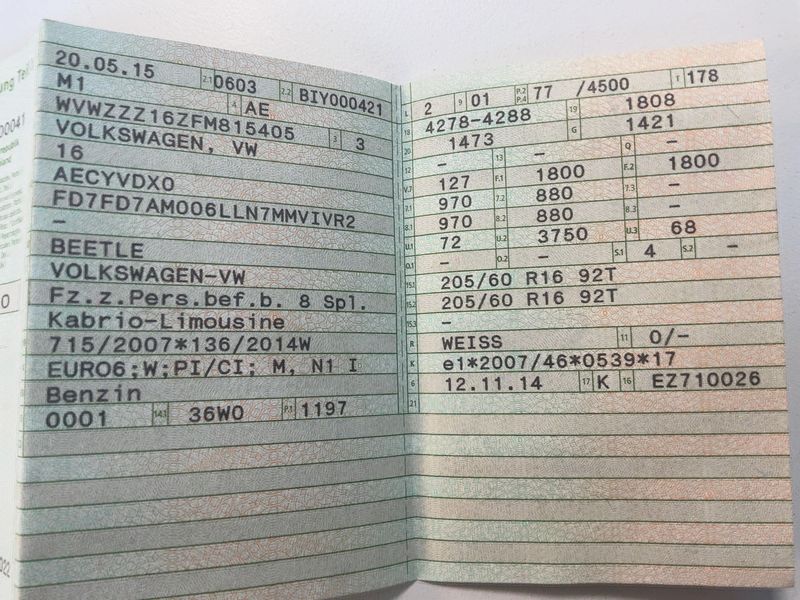 ung Teil
20.05.15 2.1 0603 2.2 BIY000421
M1 4 AE
WVWZZZ16ZFM815405 3 3
VOLKSWAGEN, VW
16
AECYVDX0
FD7FD7AM006LLN7MMVIVR2
–
BEETLE
VOLKSWAGEN-VW
Fz.z.Pers.bef.b. 8 Spl.
Kabrio-Limousine
715/2007*136/2014W
EURO6;W;PI/CI; M, N1 I
Benzin
0001 14.1 36W0 P.1 1197
L 2 9 01 P.2 P.4 77 /4500 T 178
18 4278-4288 19 1808
20 1473 G 1421
12 – 13 – Q –
V.7 127 F.1 1800 F.2 1800
7.1 970 7.2 880 7.3 –
8.1 970 8.2 880 8.3 –
U.1 72 U.2 3750 U.3 68
O.1 – O.2 – S.1 4 S.2 –
15.1 205/60 R16 92T
15.2 205/60 R16 92T
15.3 –
R WEISS 11 0/–
K e1*2007/46*0539*17
6 12.11.14 17 K 16 EZ710026
21